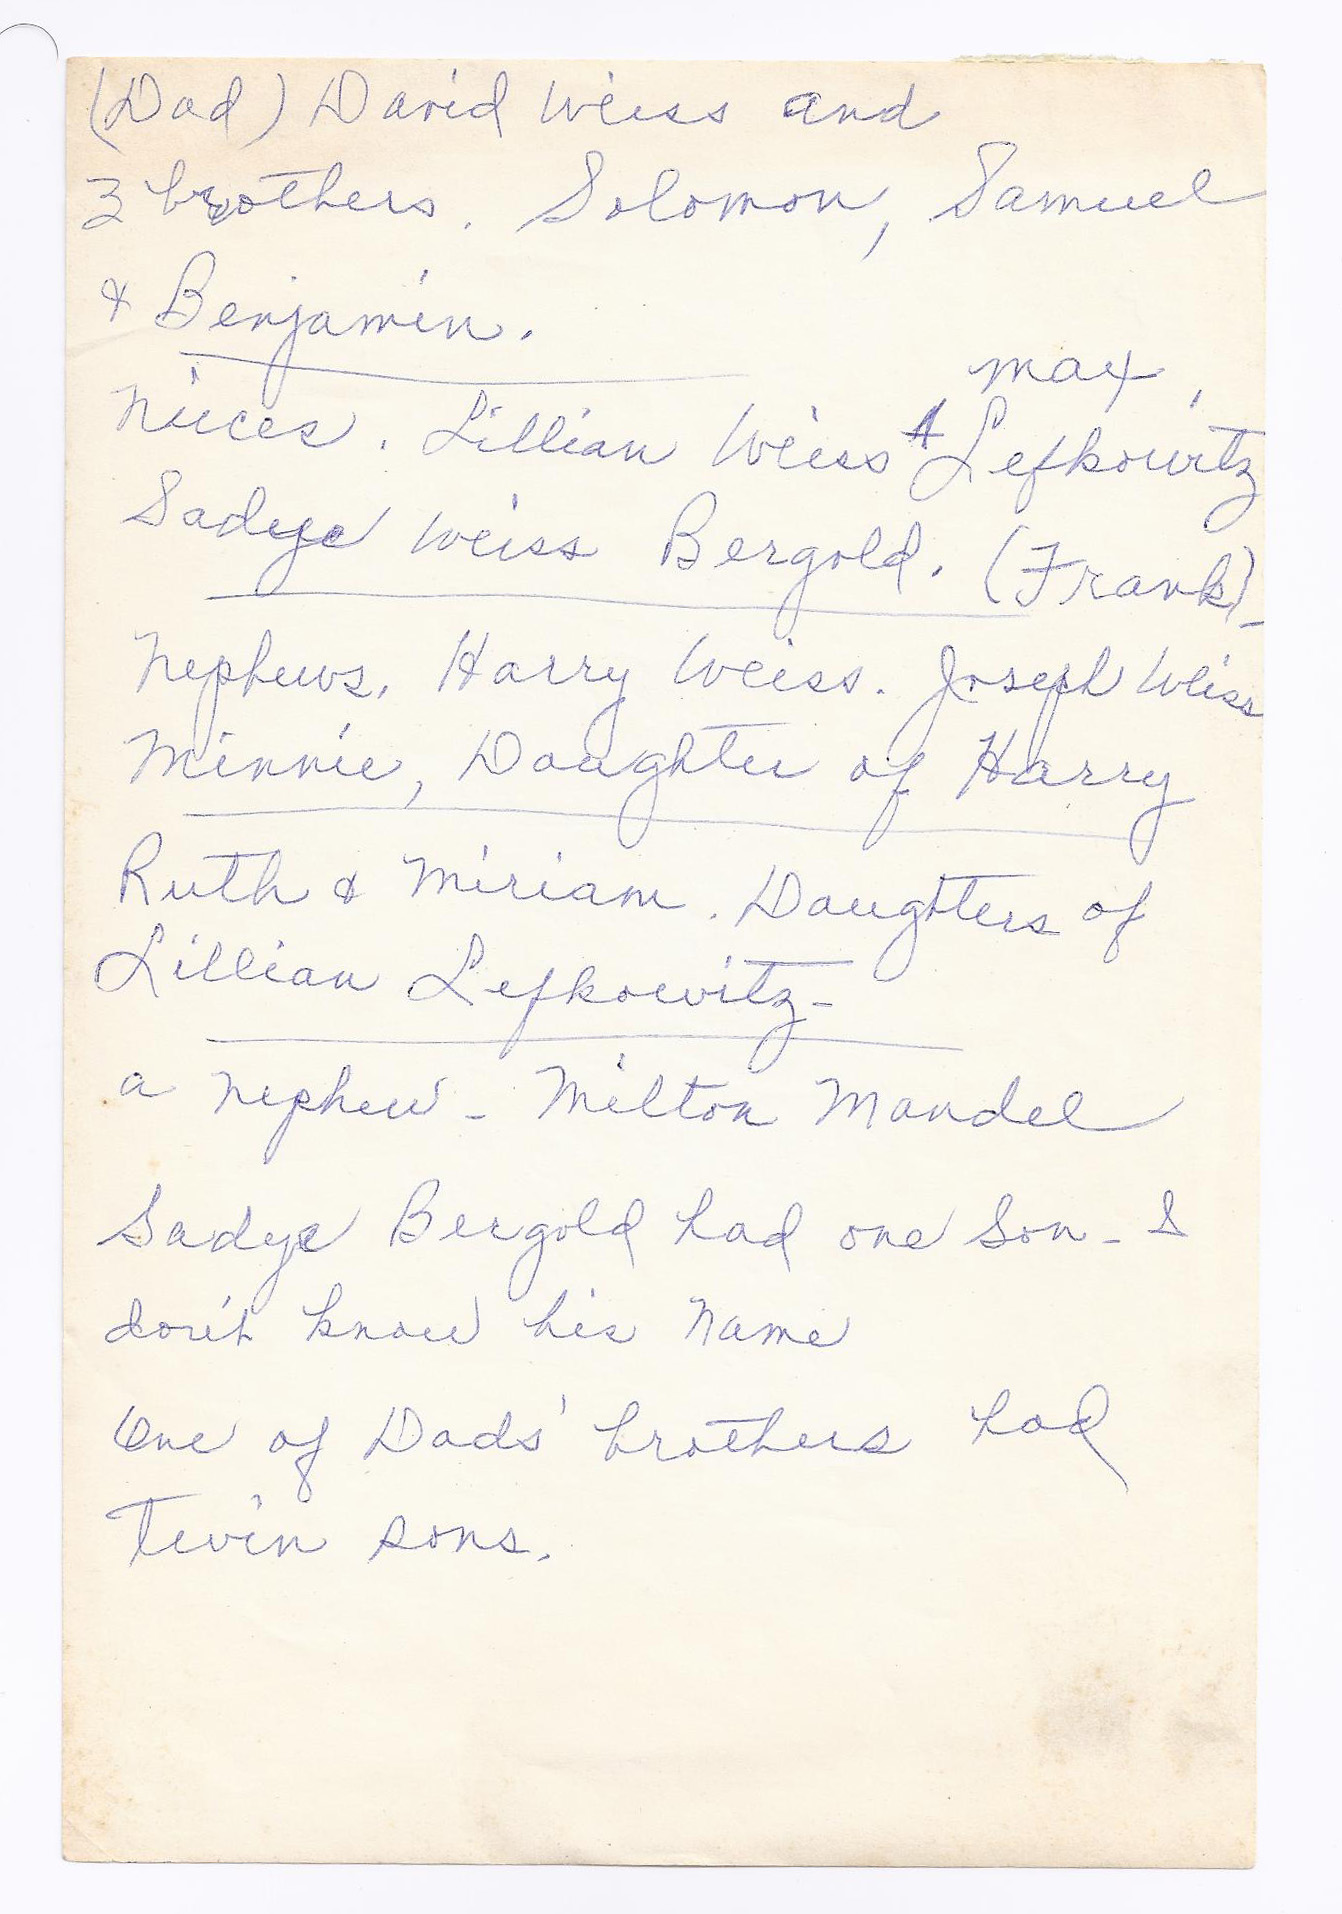 (Dad) David Weiss and
3 brothers. Solomon, Samuel
& Benjamin.
max
Nieces. Lillian Weiss ^ Lefkowitz
Sadye Weiss Bergold. (Frank)-
Nephews. Harry Weiss. Joseph Weiss
Minnie, Daughter of Harry
Ruth & Miriam. Daughters of
Lillian Lefkowitz-
a nephew - Milton Mandel
Sadye Bergold had one son - I
don't know his name
One of Dads' brothers had
Twin sons.